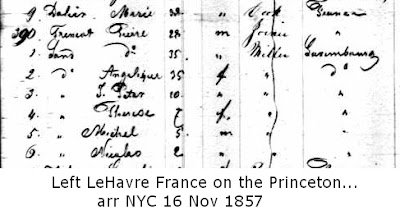 9. Dalier Marie 32 " Cook France
390. Fremont Pierre 28 " m "
1. do 35 " Miller Luxembourg
2. do Angelique 35 f " do
3. " J. Peter 10 " " "
4. " Therese 7 f " "
5. " Michel 5 m " "
6. " Nicolas 2 " " "
Left LeHavre France on the Princeton...
arr NYC 16 Nov 1857